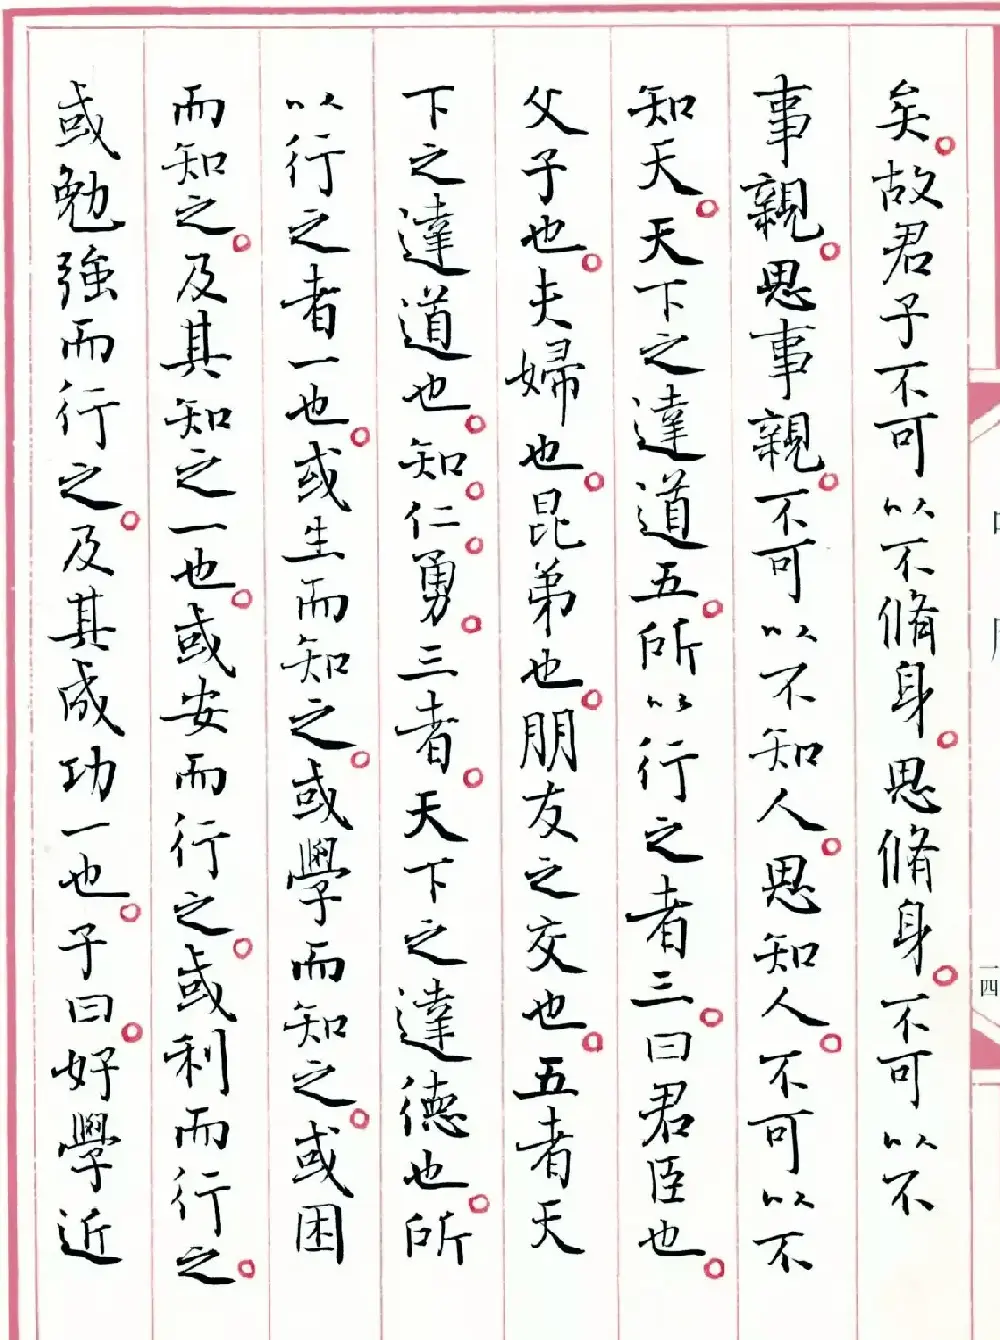 矣。故君子不可以不脩身。思脩身。不可以不
事親。思事親。不可以不知人。思知人。不可以不
知天。天下之達道五。所以行之者三。曰君臣也。
父子也。夫婦也。昆弟也。朋友之交也。五者天
下之達道也。知。仁。勇。三者。天下之達德也。所
以行之者一也。或生而知之。或學而知之。或困
而知之。及其知之一也。或安而行之。或利而行之。
或勉強而行之。及其成功一也。子曰。好學近
一四